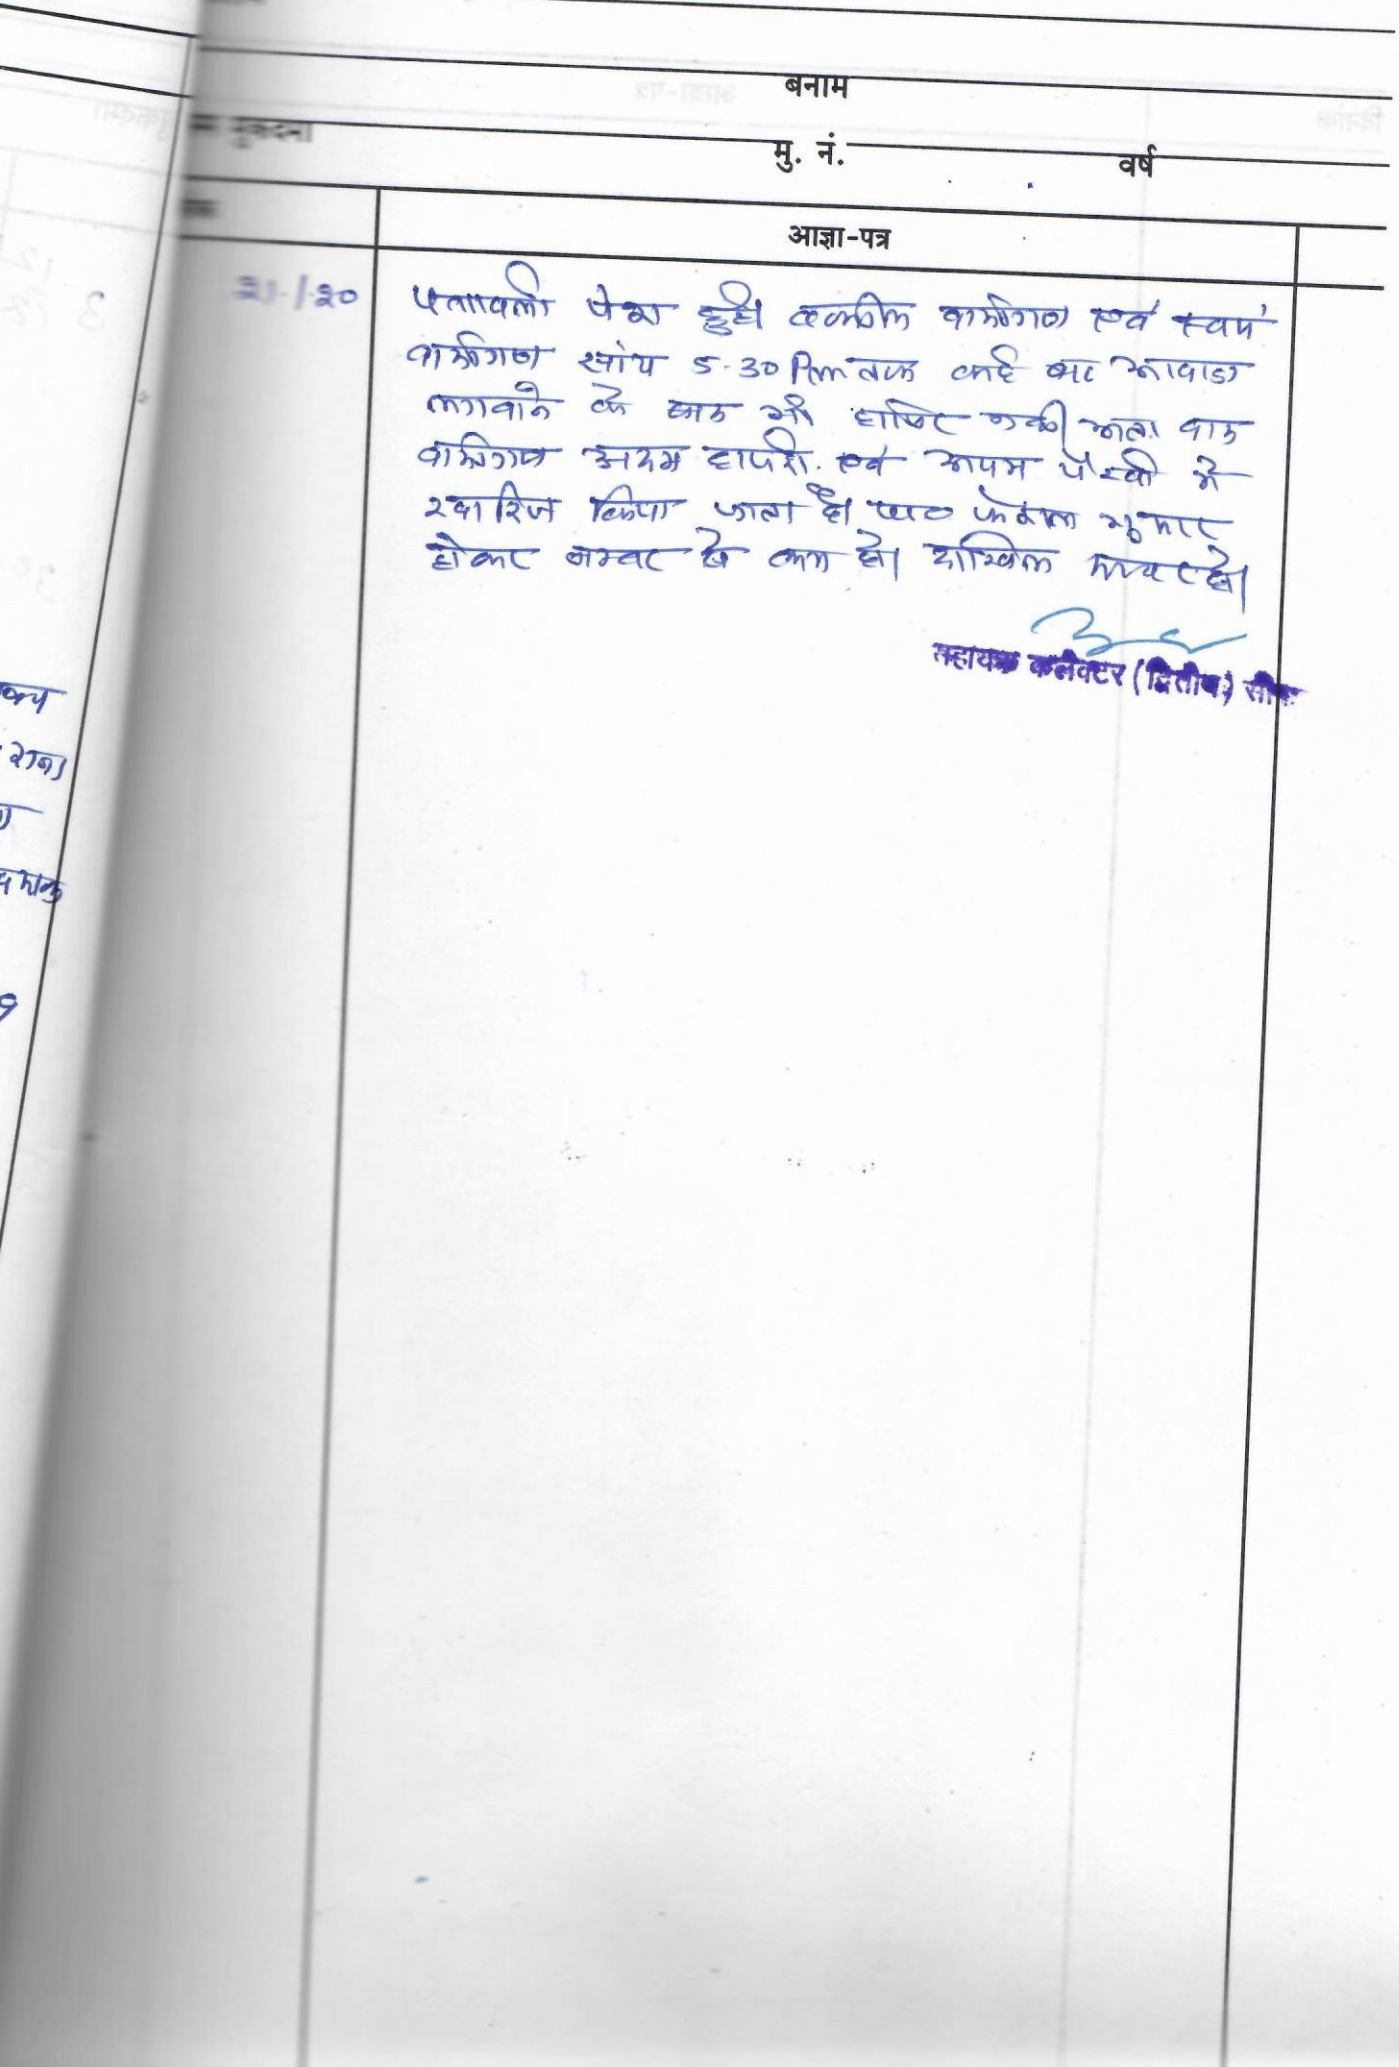 बनाम
मुकदमा
मु. नं. वर्ष
आज्ञा-पत्र
पत्रावली पेश हुई। वकील वादीगण एवं स्वयं
वादीगण सांय 5-30 Pm तक कई बार आवाज
लगवाने के बाद भी हाजिर नहीं अतः वाद
वादीगण अदम हाजरी एवं अदम पैरवी में
खारिज किया जाता है। बाद फैसला शुमार
होकर नम्बर से कम हो। दाखिल दफ्तर हो।
सहायक कलेक्टर (द्वितीय)